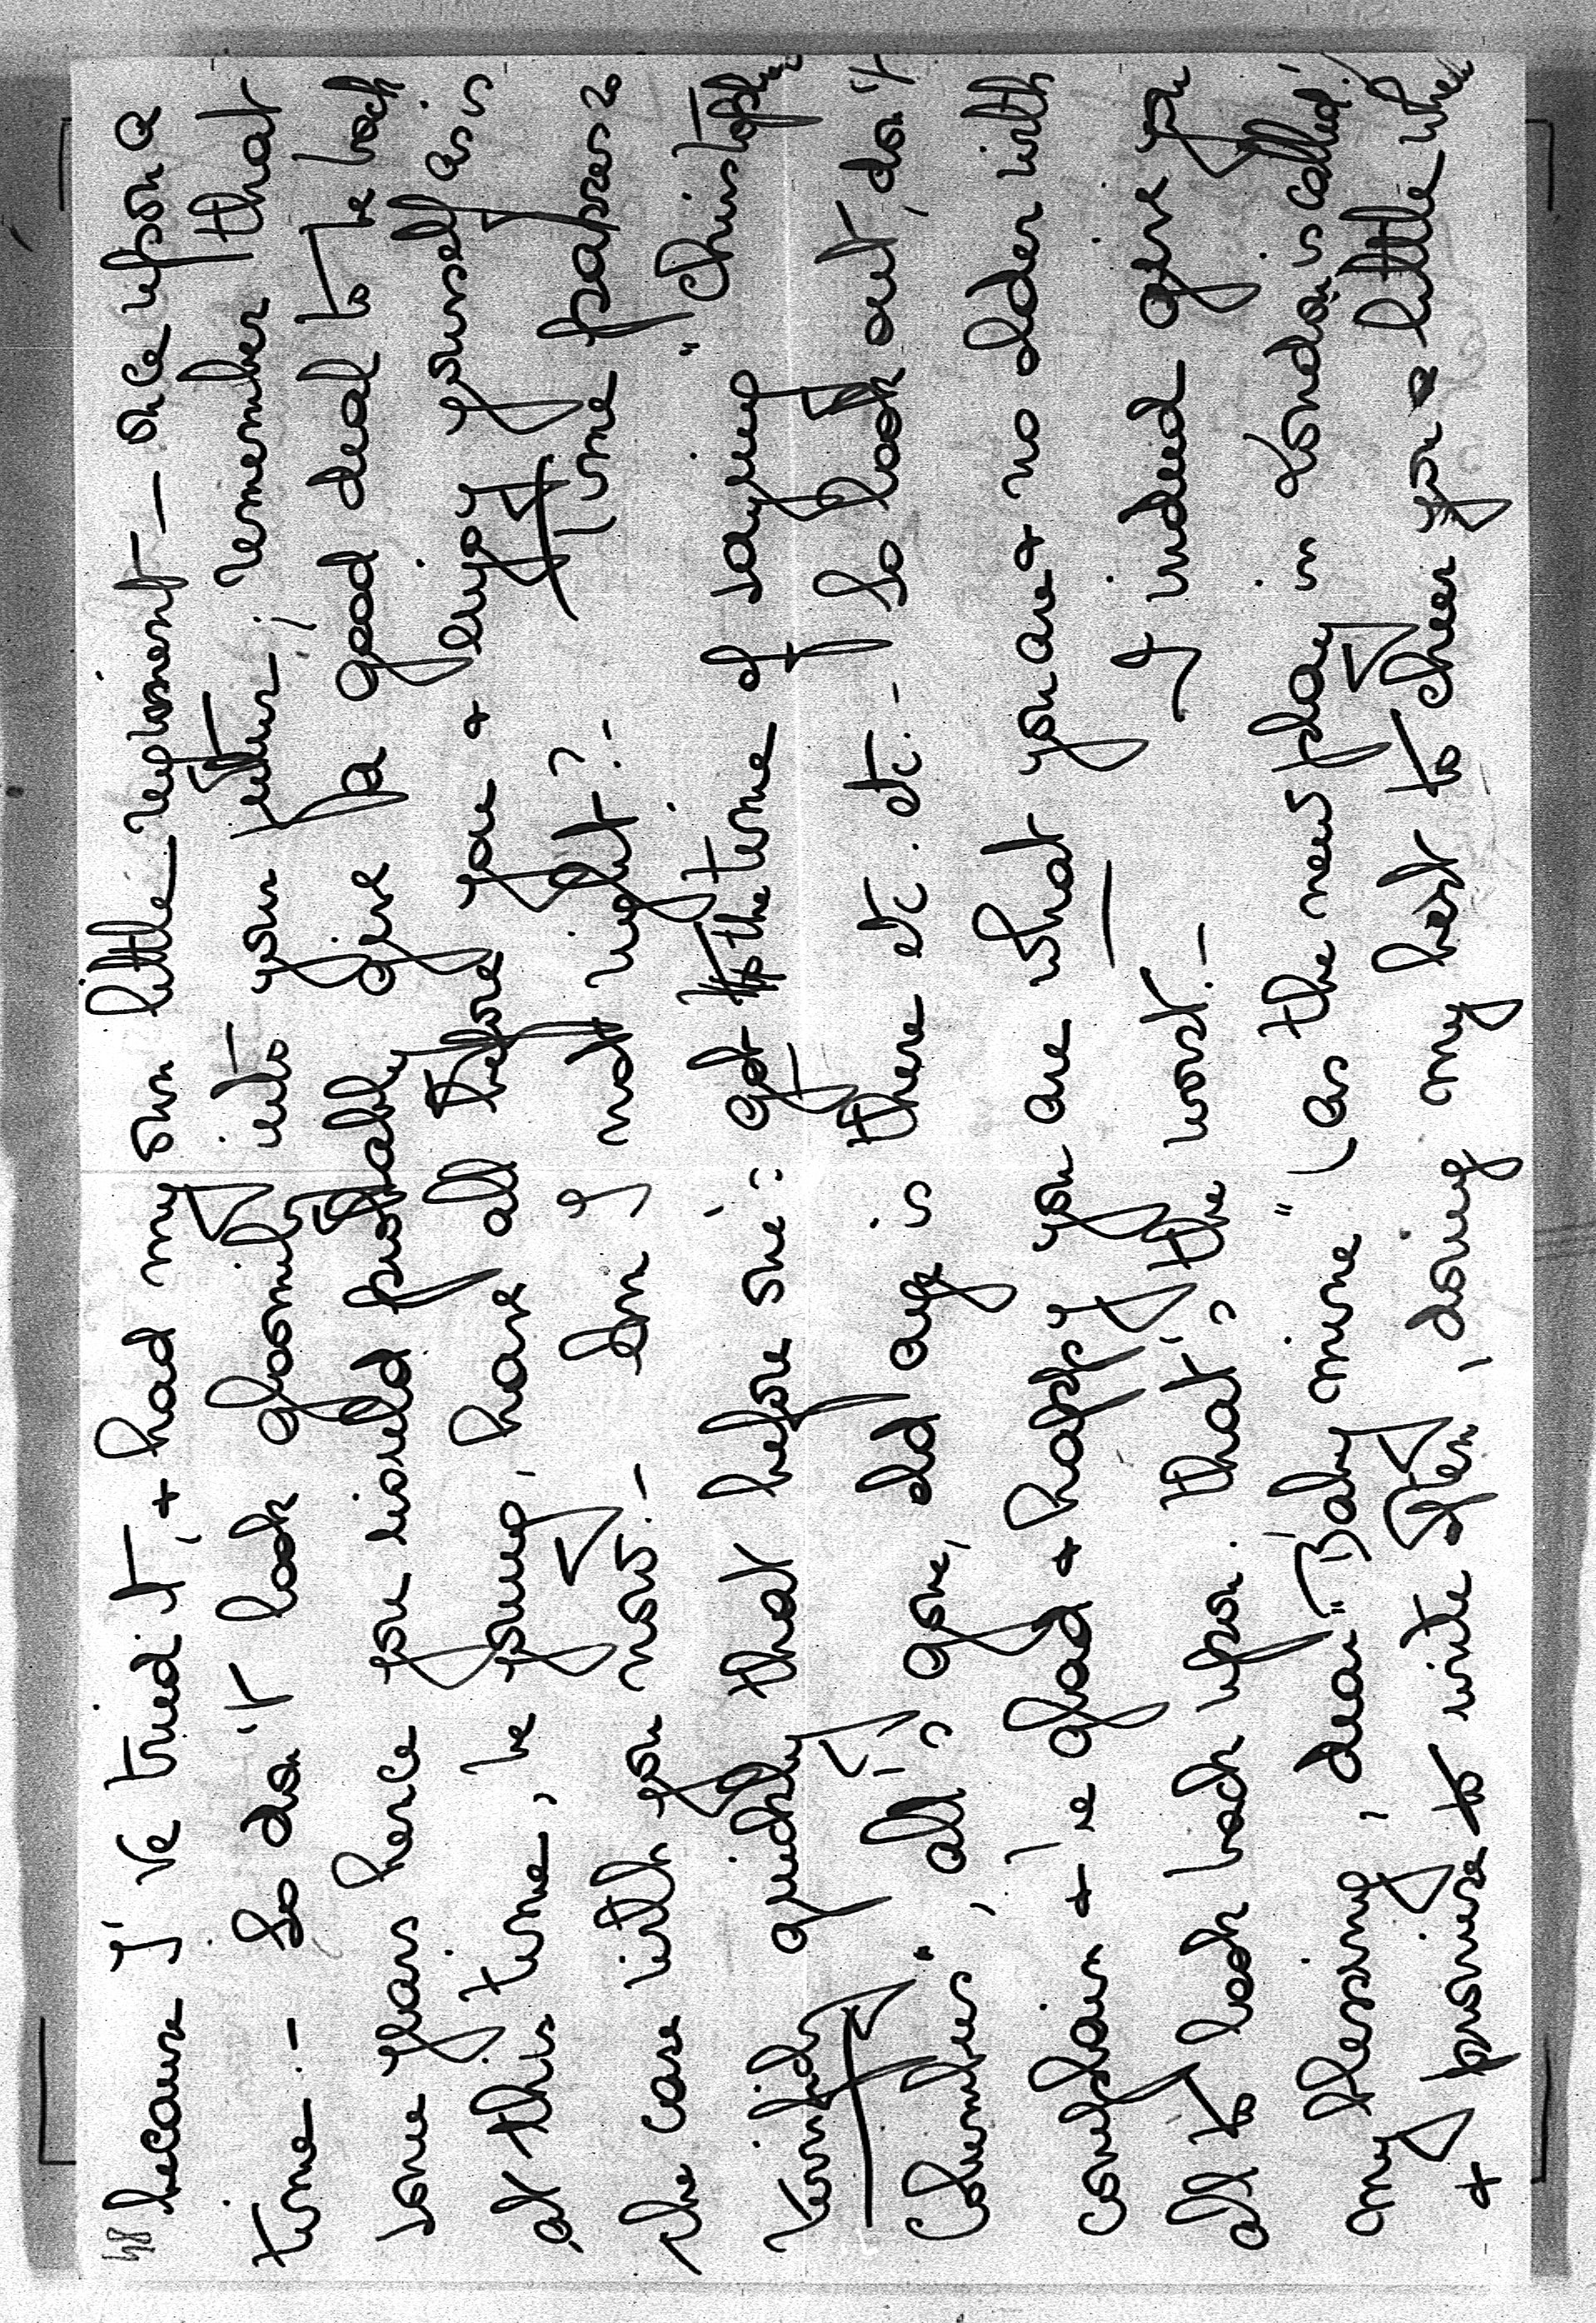 because I've tried it, & had my own little regiment — once upon a
time. — So don't look gloomily into your future; remember that
some years hence you would probably give a good deal to be back
at this time, be young, have all before you & enjoy yourself as is
the case with you now. — Am I not right? — Time passes so
terribly quickly that before one's got to the time of saying "Christopher
Columbus", all's gone, old age is there etc. etc. — So look out, don't
complain & be glad & happy you are what you are & no older with
all to look back upon. That's the worst. — I indeed give you
my blessing, dear "Baby mine" (as the new play in London is called!)
& promise to write often, doing my best to cheer you a little when